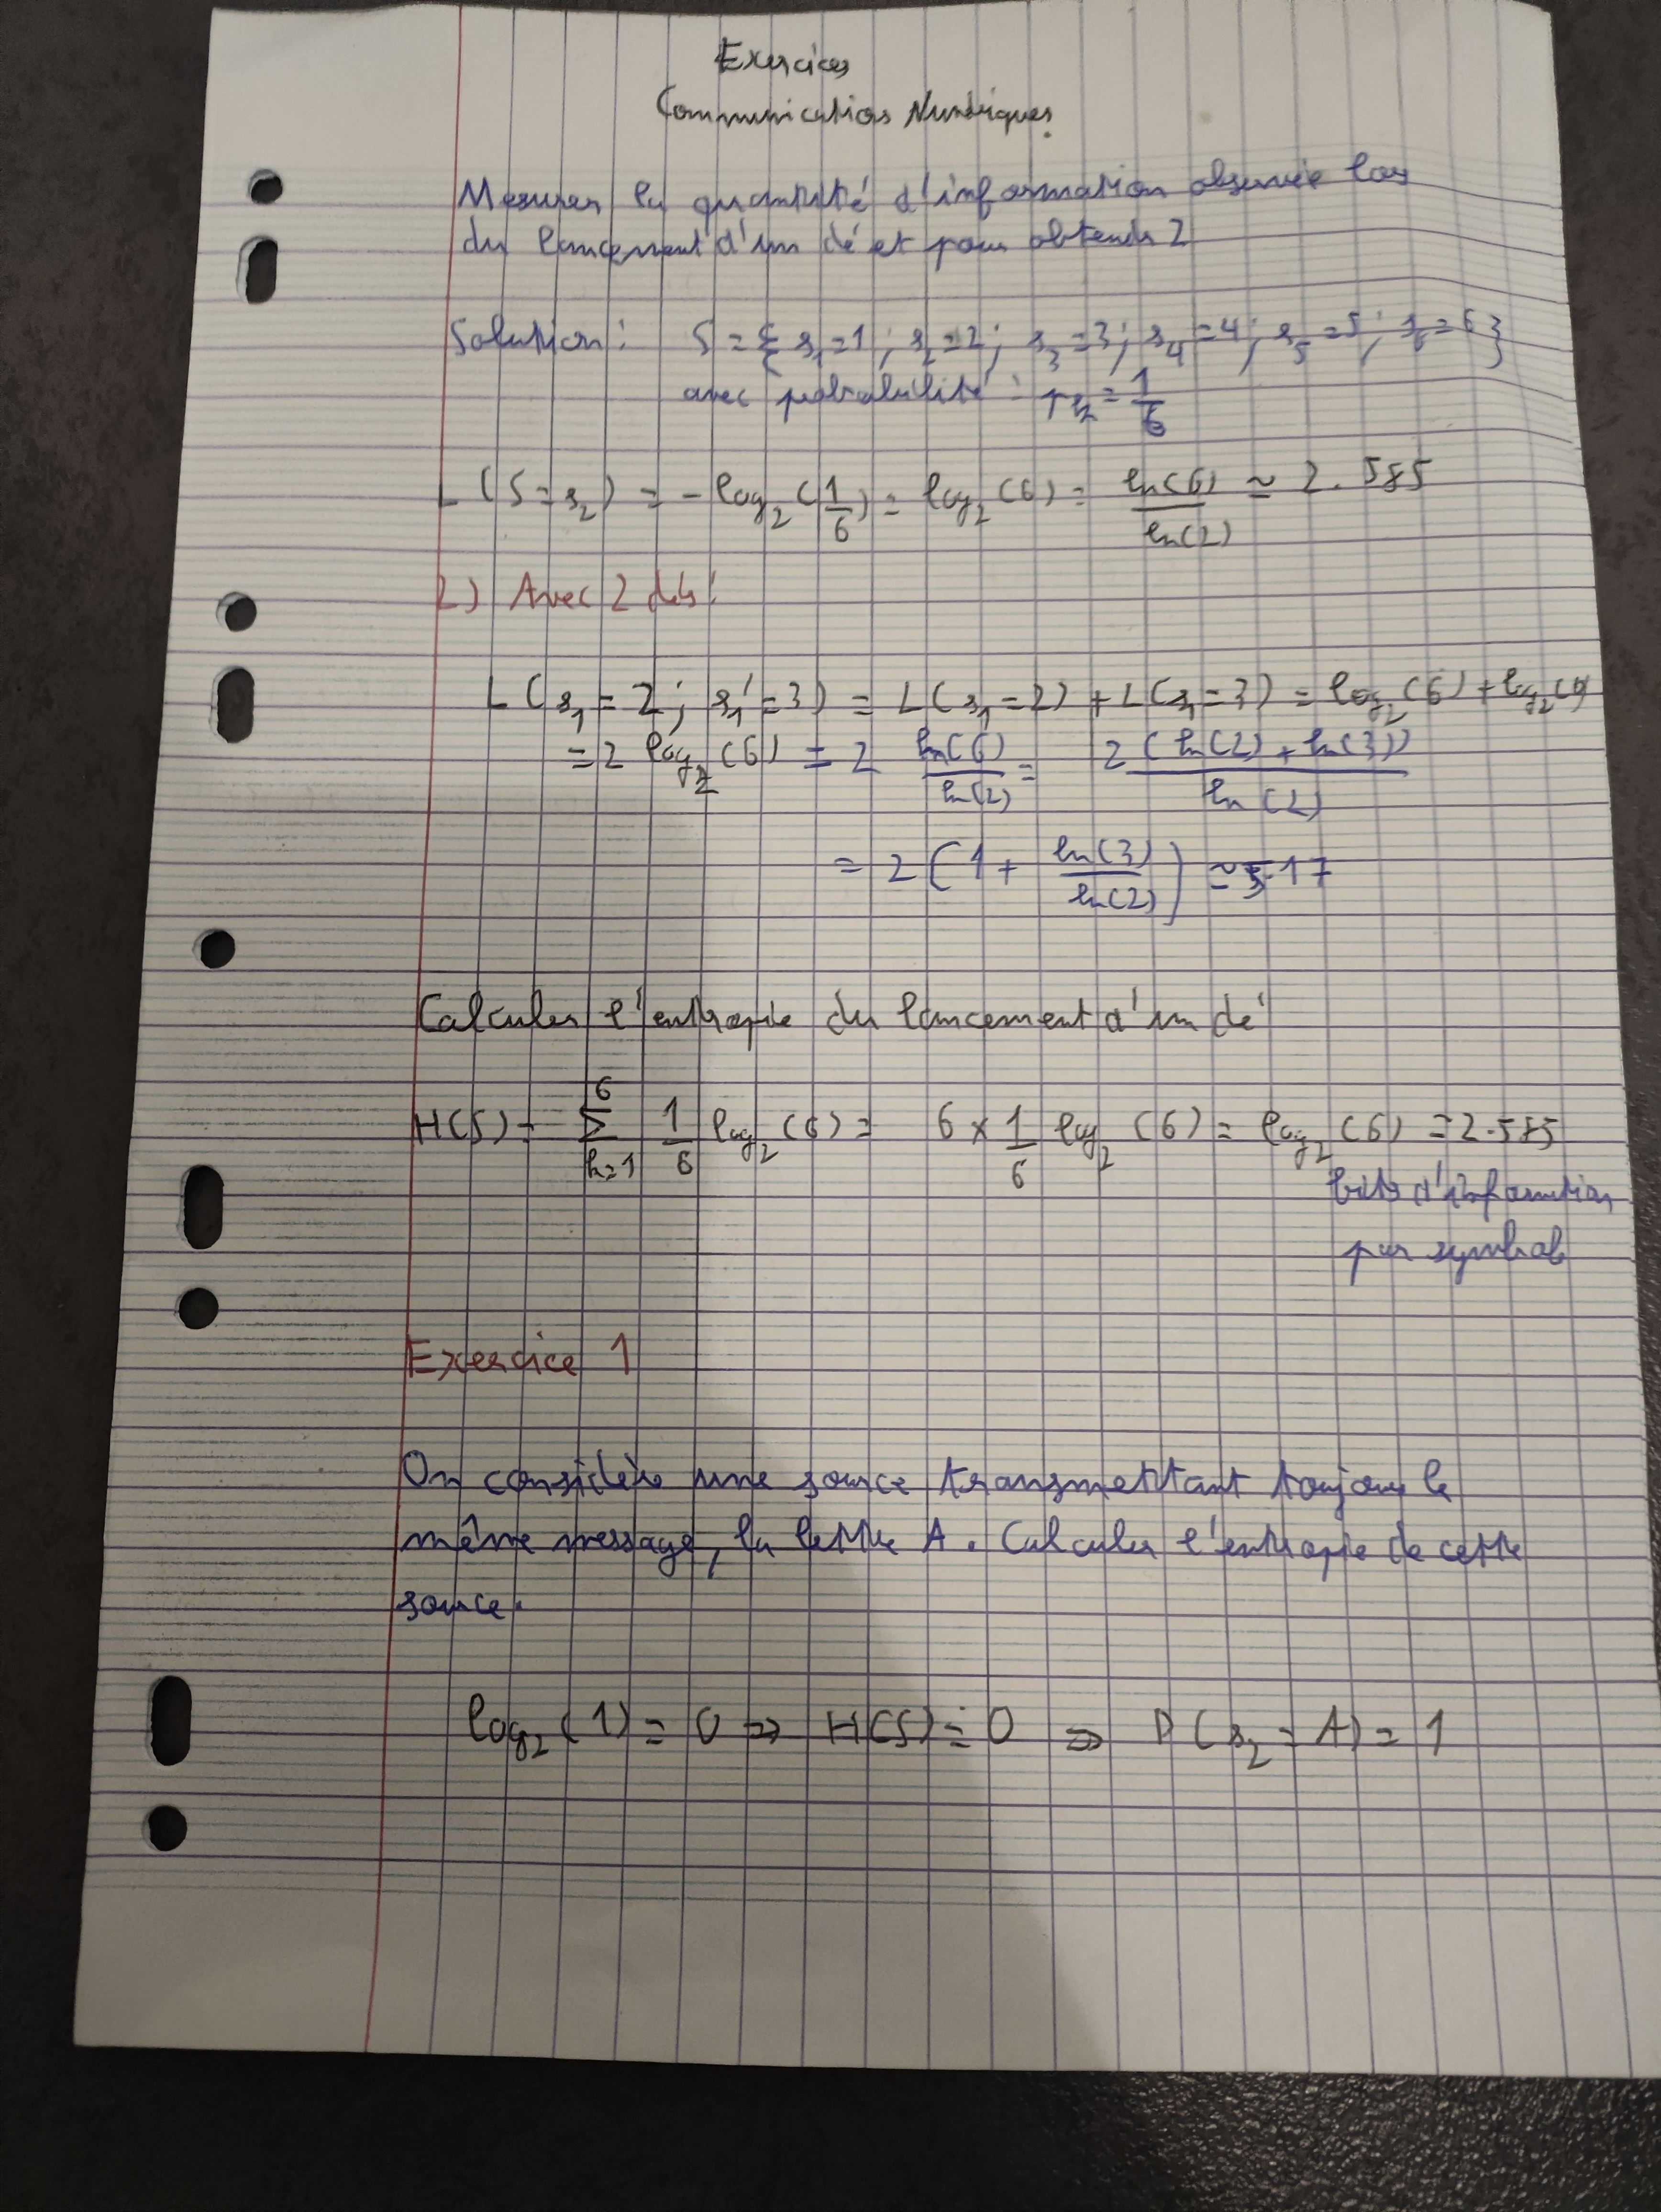 Exercices
Communications Numériques
Mesurer la quantité d'information observée lors
du lancement d'un dé et pour obtenir 2
Solution : S = { s₁=1 ; s₂=2 ; s₃=3 ; s₄=4 ; s₅=5 ; s₆=6 }
avec probabilité : = 1/6
L(S=s₂) = -log₂(1/6) = log₂(6) = ln(6)/ln(2) ≃ 2.585
2) Avec 2 dés :
L(s₁=2 ; s₁'=3) = L(s₁=2) + L(s₁=3) = log₂(6) + log₂(6)
= 2 log₂(6) = 2 ln(6)/ln(2) = 2 (ln(2) + ln(3))/ln(2)
= 2 (1 + ln(3)/ln(2)) ≃ 5.17
Calculer l'entropie du lancement d'un dé
H(S) = ∑_{k=1}^{6} 1/6 log₂(6) = 6 × 1/6 log₂(6) = log₂(6) = 2.585
bits d'information
par symbole
Exercice 1
On considère une source transmettant toujours le
même message, la lettre A. Calculer l'entropie de cette
source.
log₂(1) = 0 => H(S) = 0 => P(s₂ = A) = 1